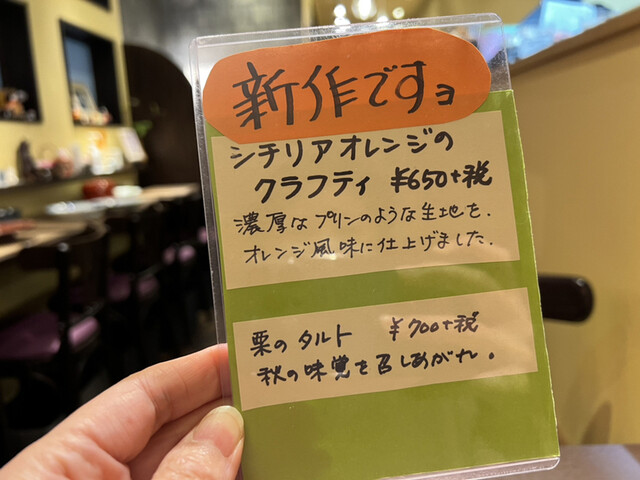 新作ですョ
シチリアオレンジの
クラフティ ¥650+税
濃厚なプリンのような生地を、
オレンジ風味に仕上げました。
栗のタルト ¥700+税
秋の味覚を召しあがれ。